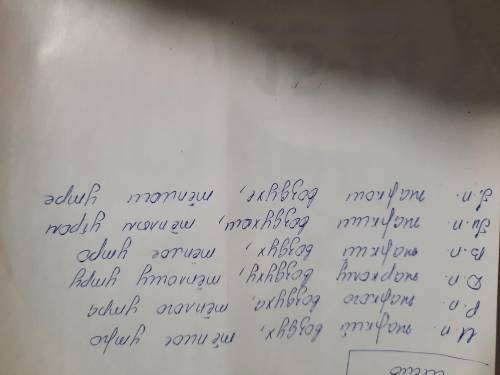 И.п. жаркий воздух, тёплое утро
Р.п. жаркого воздуха, тёплого утра
Д.п. жаркому воздуху, тёплому утру
В.п. жаркий воздух, тёплое утро
Тв.п. жарким воздухом, тёплым утром
П.п. жарком воздухе, тёплом утре